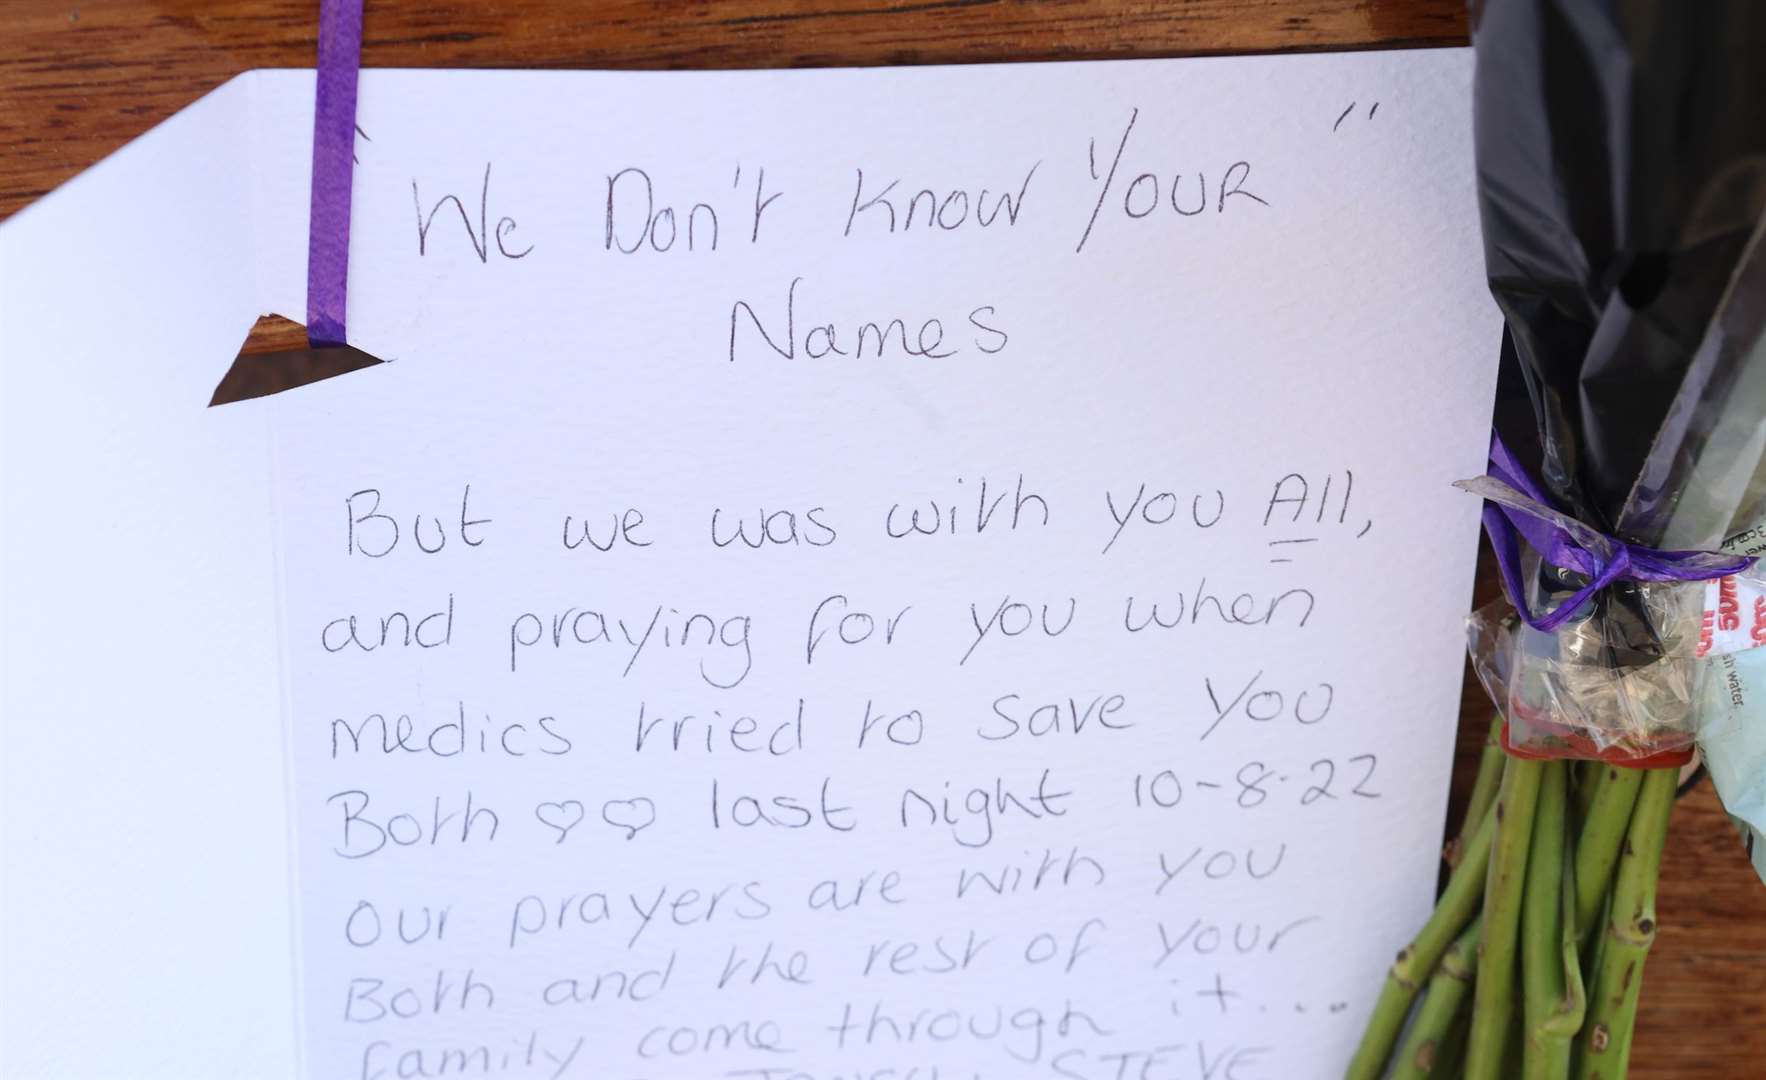 "We Don't Know Your"
Names
But we was with you All,
and praying for you when
medics tried to save you
Both ♡♡ last night 10-8-22
Our prayers are with you
Both and the rest of your
family come through it...
STEVE
50m
sh water